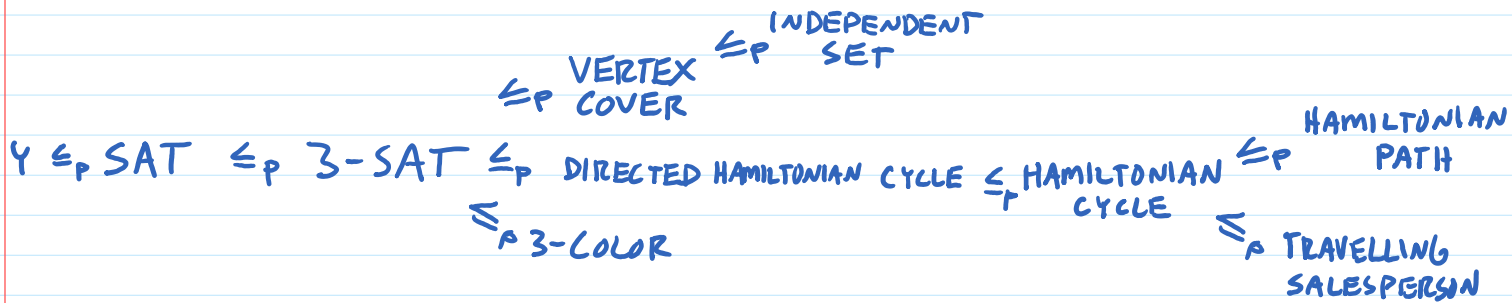 ≤p INDEPENDENT
SET
≤p VERTEX
COVER
Y ≤p SAT ≤p 3-SAT ≤p DIRECTED HAMILTONIAN CYCLE ≤p HAMILTONIAN
CYCLE
≤p HAMILTONIAN
PATH
≤p 3-COLOR
≤p TRAVELLING
SALESPERSON